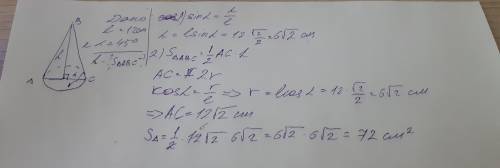 B
Дано
l = 12 см
∠ α = 45°
h - ? S△ABC - ?
l
h
A
r
α
C
1) sin α = h/l
h = l sin α = 12 √2/2 = 6√2 см
2) S△ABC = 1/2 AC · h
AC = 2r
cos α = r/l ⇒ r = l cos α = 12 · √2/2 = 6√2 см
⇒ AC = 12√2 см
S△ = 1/2 · 12√2 · 6√2 = 6√2 · 6√2 = 72 см²